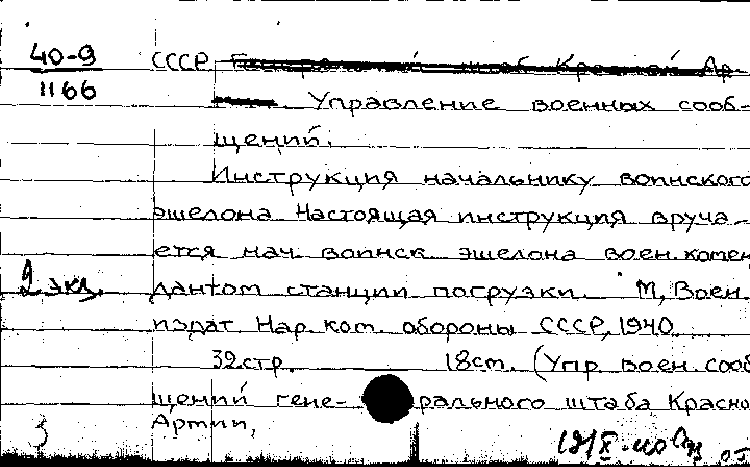 40-9
1166
СССР Генеральный штаб Красной Ар-
Управление военных сооб-
щений.
Инструкция начальнику воинского
эшелона Настоящая инструкция вруча-
ется нач. воинск. эшелона воен. комен
2 экз.
дантом станции погрузки. М, Воен.
издат. Нар. ком. обороны СССР, 1940.
32 стр. 18 cm. (Упр. воен. сооб
щений гене- рального штаба Красно
Армии,
3